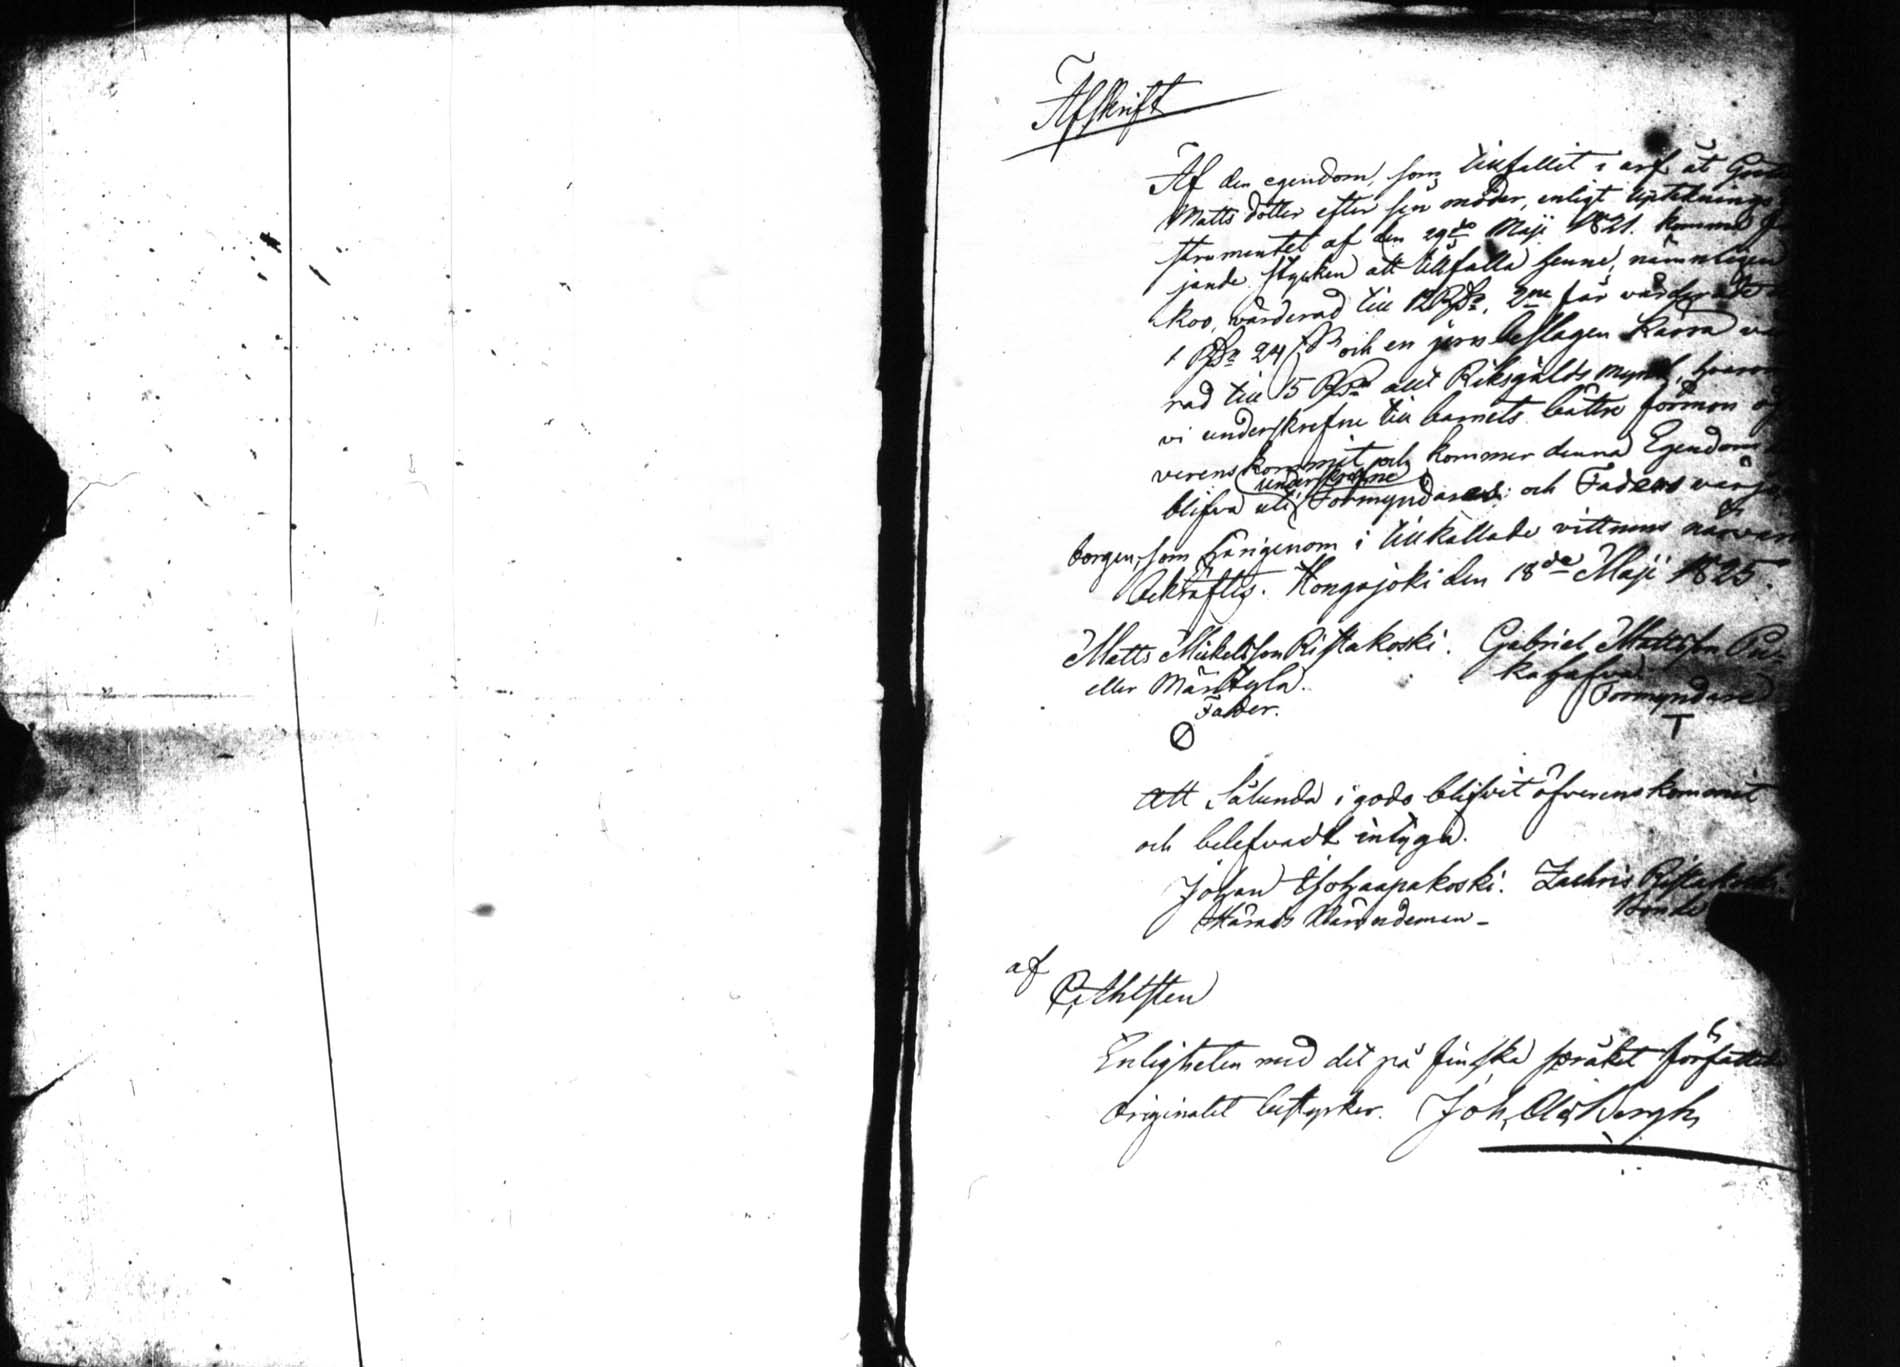 Afskrift
Af den egendom, som tillfallit i arf åt
Matts dotter efter sin moder, enligt Uptecknings
strumentet af den 29de Maji 1821. komma
jande stycken att tillfalla henne, nämnligen
koo, värderad till 12 Rdr, 2ne får värderade
1 Rdr 24 s. och en jern beslagen Kärra vär
rad till 15 Rdr allt Riksgälds mynt, hvarom
vi underskrefne till barnets bättre förmon öf
verenskommit och kommer denna Egendom
blifva uti underskrefne Förmyndares och Faders värjo
borgen, som härigenom i tillkallade vittnens närvaro
bekräftes. Hongojoki den 18de Maji 1825.
Matts Mickelsson Ristakoski. Gabriel Mattsson Pu-
eller Mäntyla. kagafva
Fader. Förmyndare
T
Att Sålunda i godo blifvit öfverenskommit
och belefvadt intyga.
Johan Ahokas Zachris Ristakoski
Härads Nämndeman - Bonde
af
Ahlsten
Enligheten med det på finska språket författade
originalet bestyrker. Joh. Bergh